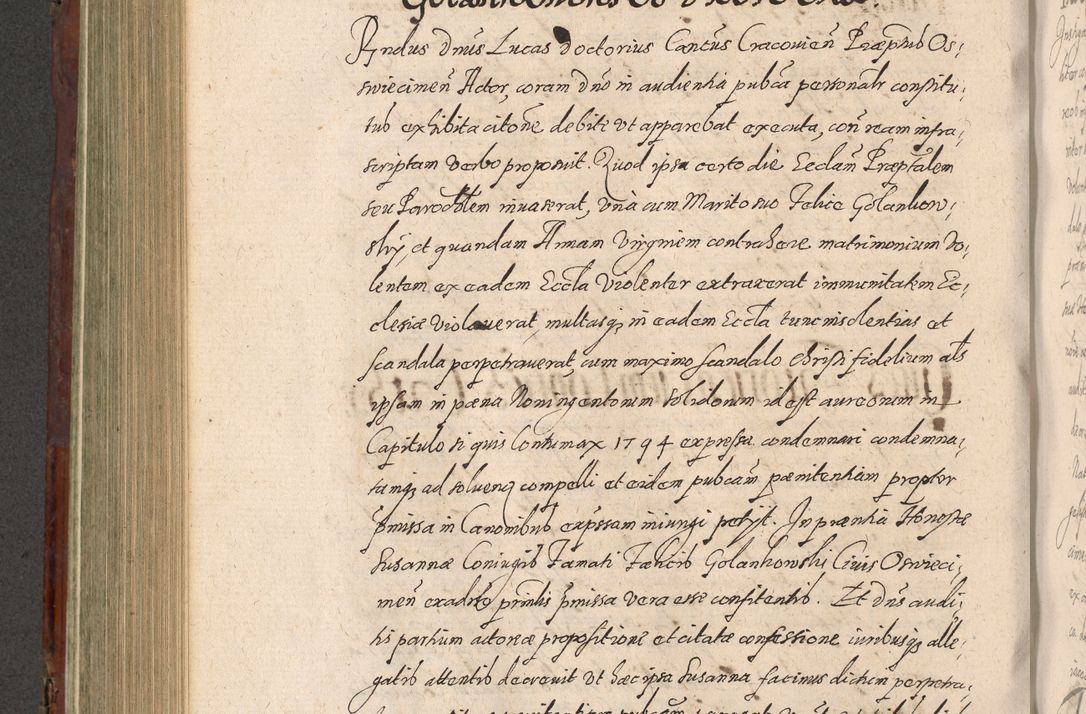 Rndus Dnus Lucas Doctorius Cantus Cracovien Præptus Os;
swiecimen Actor, coram dno in audientia pubca personalr constitu;
tus exhibita citone debite ut apparebat executa, con ream infra;
scriptam verbo proposuit. Quod ipsa certo die Ecclam Præptalem
seu Parochlem invaserat, una cum Marito suo Felice Golankow;
skij et quandam Annam Virginem contrahere matrimonium vo;
lentem ex eadem Eccla Violenter extraxerat immunitatem Ec;
clesiæ violaverat, multasq in eadem Eccla tunc insolentias et
scandala perpetraverat, cum maximo scandalo Christifidelium als
ipsam in pæna Noningentorum solidorum id est aureorum in
Capitulo si quis Contumax 1794 expressa condemnari condemna;
tamq ad solvenq compelli et eidem pubcam pænitentiam propter
pmissa in Canonibus expssam iniungi petijt. In præntia Honestæ
Susannæ Coniugis Famati Fælicis Golankowski Civis Oswieci;
men exadrso prinlis pmissa vera esse confitentis. Et Dns audi;
tis partium actoreæ propositione et citatæ confessione iuribusq alle;
gatis attentis decrevit ut hæc ipsa Susanna facinus dictum perpetra;